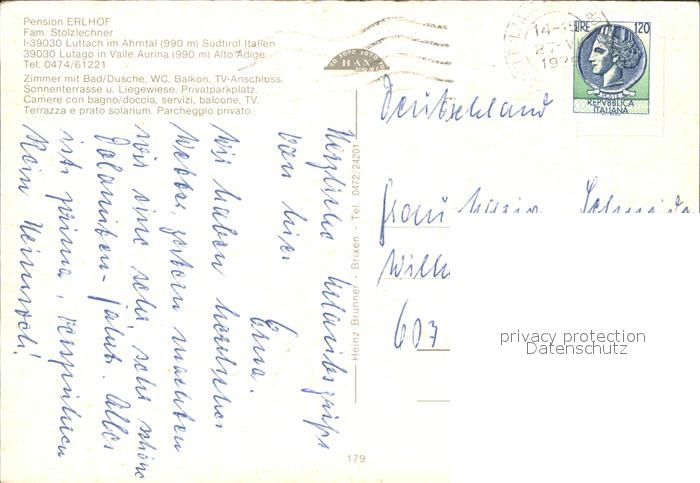 Pension ERLHOF
Fam. Stolzlechner
I-39030 Luttach im Ahrntal (990 m) Südtirol Italien
39030 Lutago in Valle Aurina (990 m) Alto Adige.
Tel. 0474/61221
Zimmer mit Bad/Dusche, WC, Balkon, TV-Anschluss.
Sonnenterrasse u. Liegewiese. Privatparkplatz.
Camere con bagno/doccia, servizi, balcone, TV.
Terrazza e prato solarium. Parcheggio privato.
Herzliche Urlaubsgrüße
von hier
Erna.
Wir haben herrliches
Wetter, gestern machten
wir eine sehr, sehr schöne
Dolomiten-
ist prima,
Kein Heimweh!
Heinz Brunner - Brixen - Tel. 0472/24201
179
HAX
14-
27-VI
197
LIRE 120
POSTE
REPVBBLICA
ITALIANA
Deutschland
Frau Maria
603
privacy protection
Datenschutz